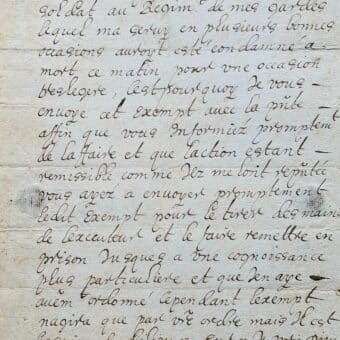 soldat au Regim^t de mes gardes
lequel ma seruy en plusieurs bonnes
occasions auroyt esté condamné a
mort, ce matin, pour vne occasion
tres legere, C'est pourquoy Je vous
envoye cet Exempt avec la pñte
affin que vous Informiéz promptem^t
de laffaire et que laction estant
remissible comme Jl me loit
vous ayéz a envoyer promptement
ledit Exempt pour le tirer des mains
de lexecuteur et le faire remettre en
prison Jusques a vne cognoissance
plus particuliere et que Jen aye
auttm^t ordonné cependant lexempt
nagira que par vre ordre mais Jl est